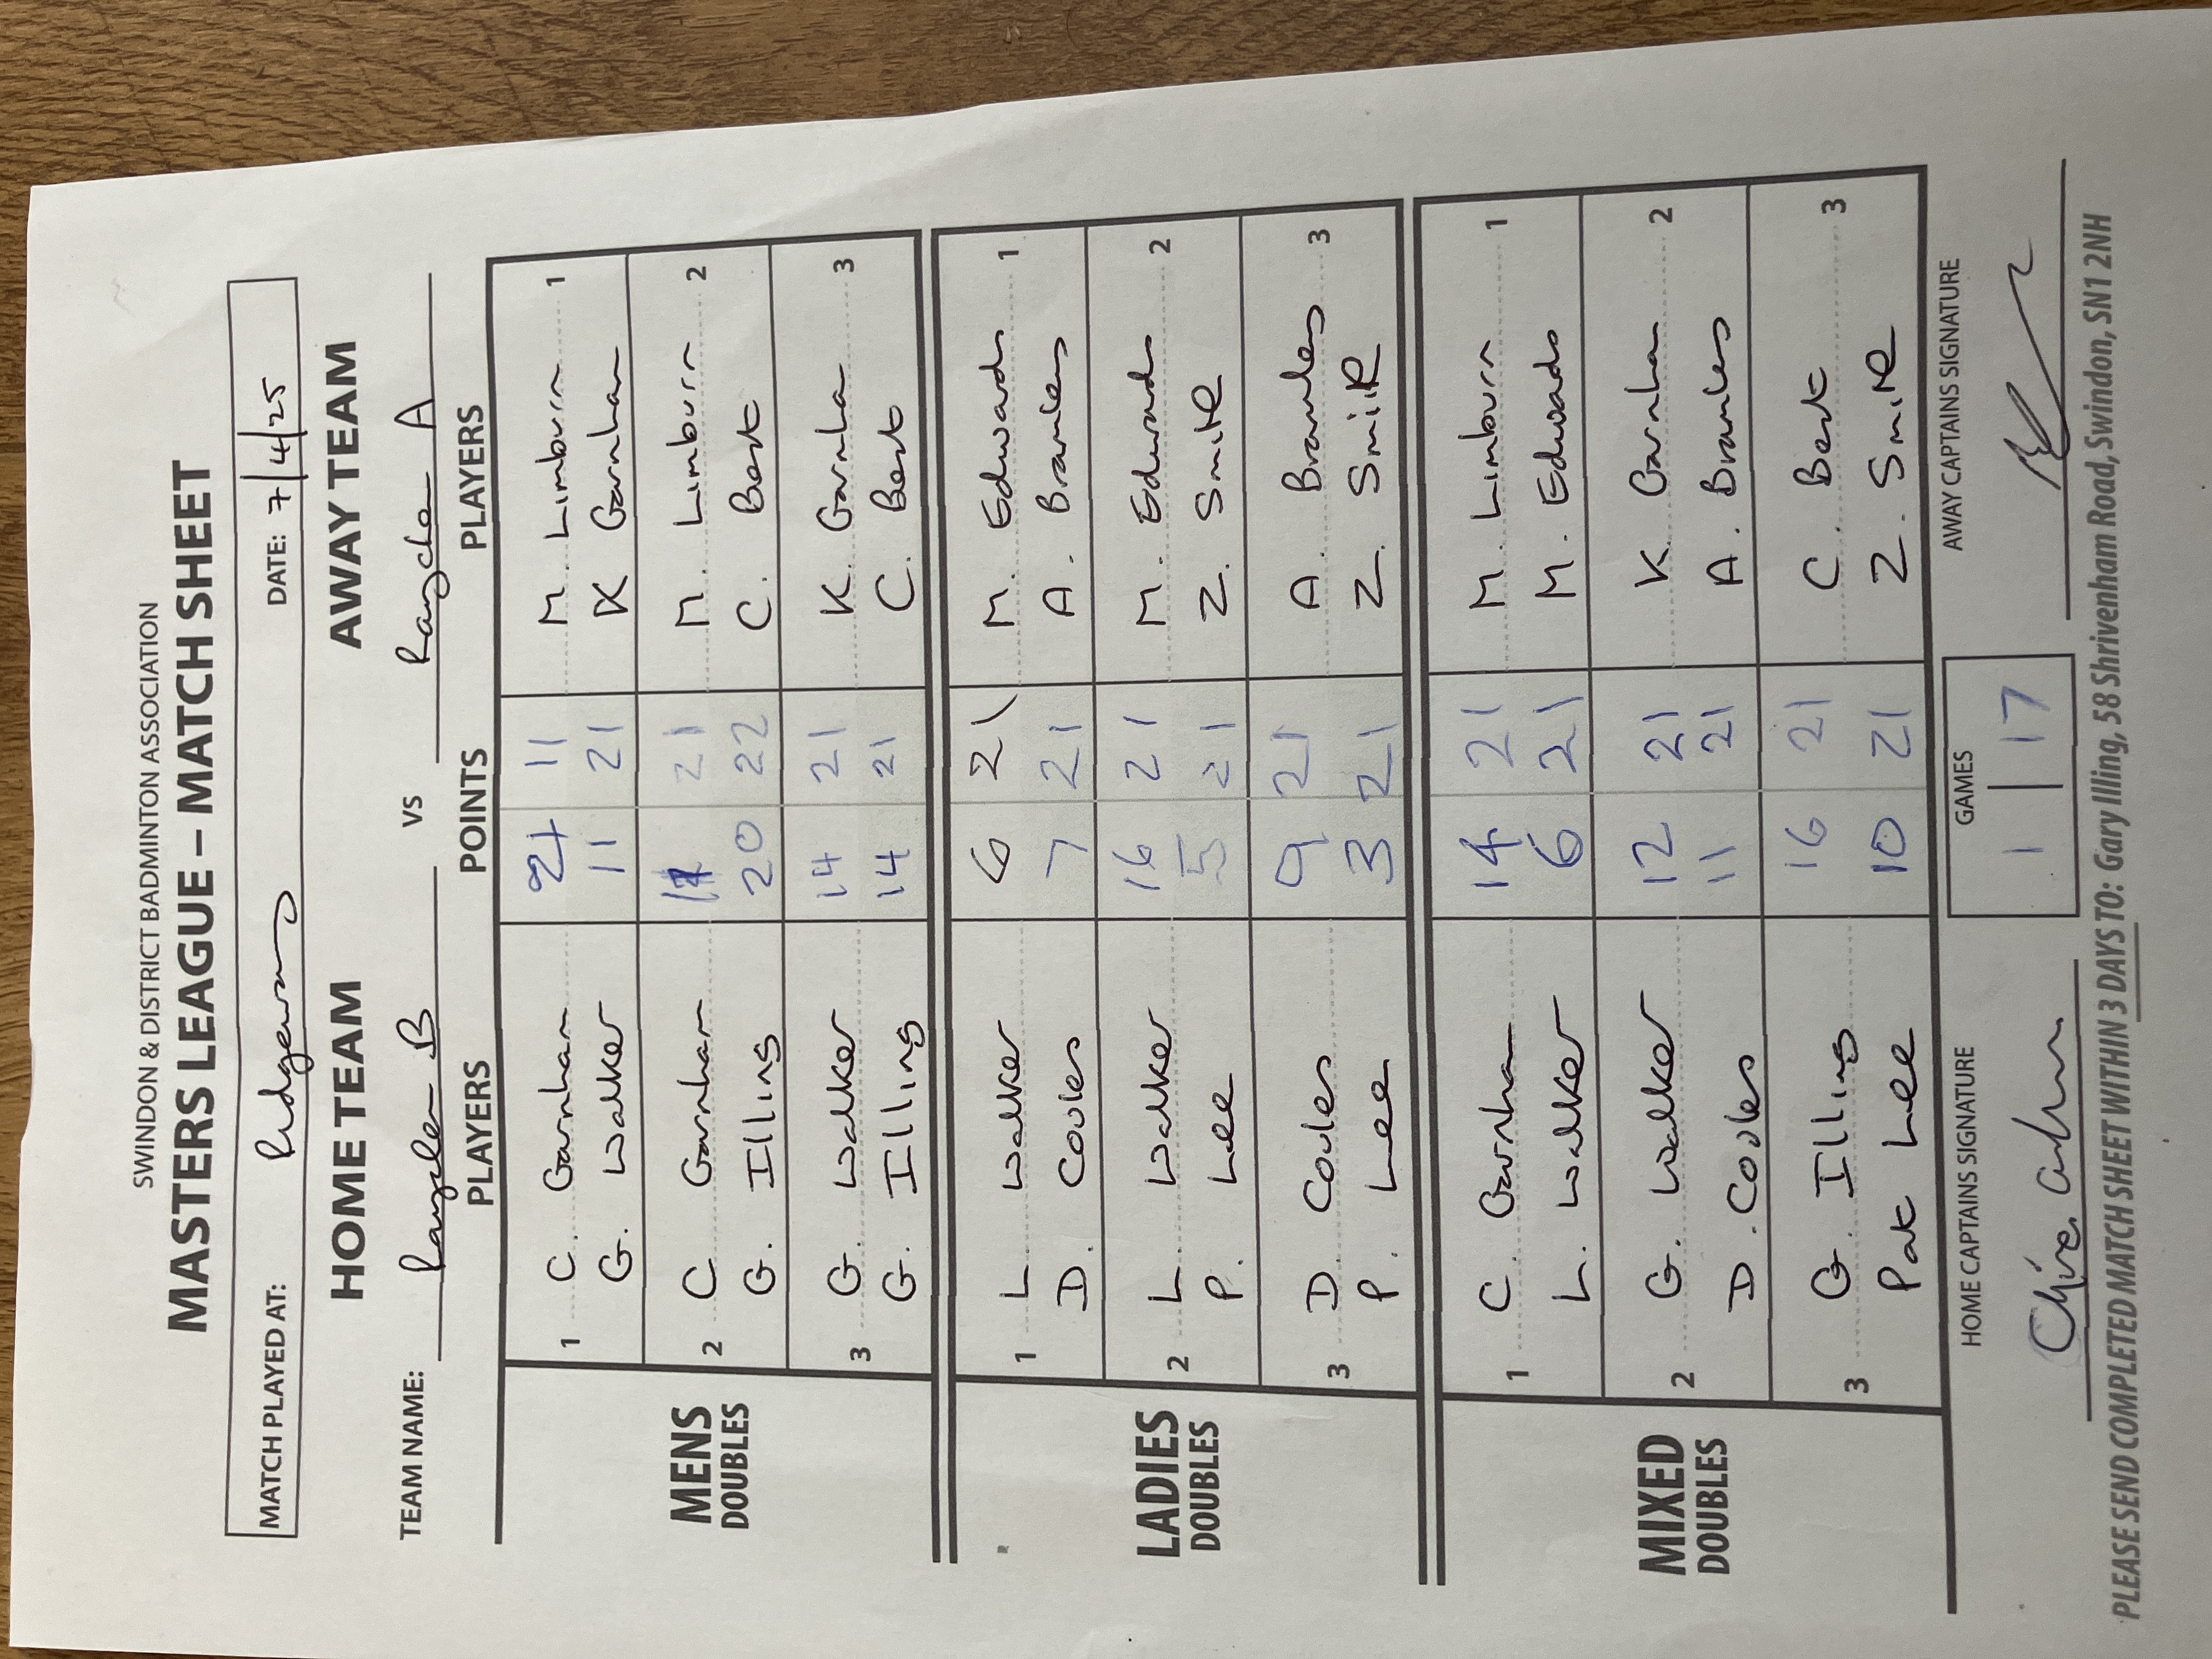 SWINDON & DISTRICT BADMINTON ASSOCIATION
MASTERS LEAGUE – MATCH SHEET
MATCH PLAYED AT: Ridgeway DATE: 7/4/25
HOME TEAM AWAY TEAM
TEAM NAME: B vs A
PLAYERS POINTS PLAYERS
MENS DOUBLES
1 C. Garnham 21 11 M. Limburn 1
G. Walker 11 21 K Garnham
2 C Garnham 21 M. Limburn 2
G. Illing 20 22 C. Best
3 G. Walker 14 21 K. Garnham 3
G. Illing 14 21 C. Best
LADIES DOUBLES
1 L. Walker 6 21 M. Edwards 1
D. Coules 7 21 A. Bramley
2 L. Walker 16 21 M. Edwards 2
P. Lee 5 21 Z. Smith
3 D. Coules 9 21 A. Bramley 3
P. Lee 3 21 Z. Smith
MIXED DOUBLES
1 C. Garnham 14 21 M. Limburn 1
L. Walker 6 21 M. Edwards
2 G. Walker 12 21 K. Garnham 2
D. Coules 11 21 A. Bramley
3 G. Illing 16 21 C. Best 3
Pat Lee 10 21 Z. Smith
HOME CAPTAINS SIGNATURE GAMES AWAY CAPTAINS SIGNATURE
1 | 17
PLEASE SEND COMPLETED MATCH SHEET WITHIN 3 DAYS TO: Gary Illing, 58 Shrivenham Road, Swindon, SN1 2NH